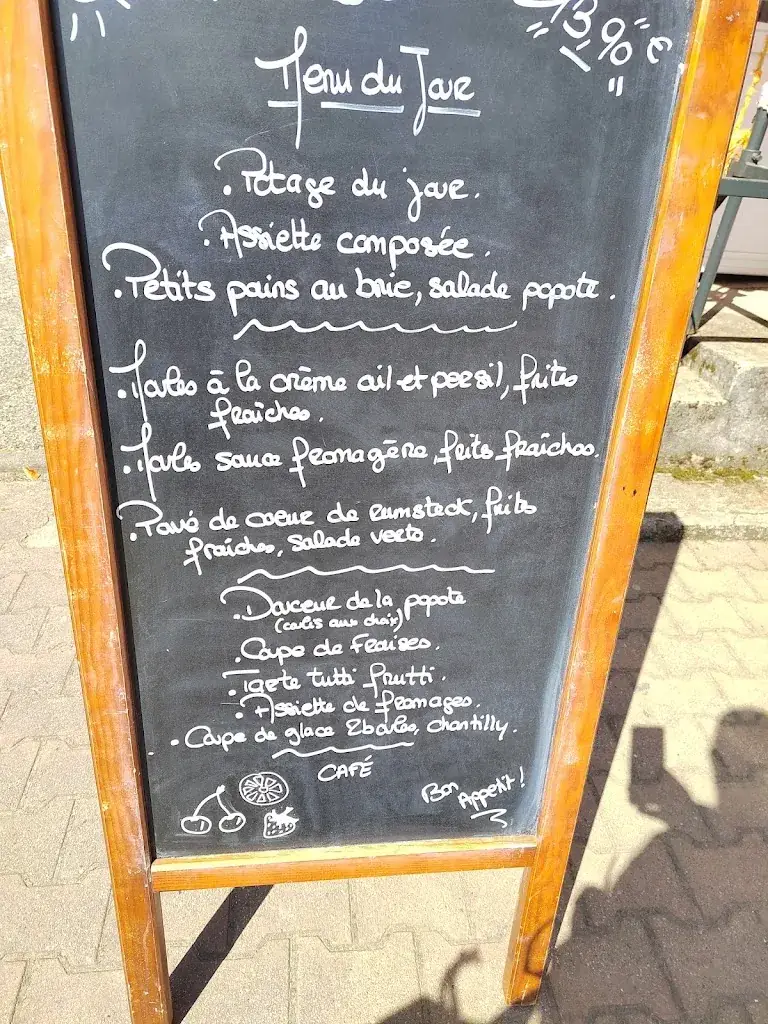 13,90 €
Menu du Jour
. Potage du jour.
. Assiette composée.
. Petits pains au brie, salade popote.
. Moules à la crème ail et persil, frites
fraîches.
. Moules sauce fromagère, frites fraîches.
. Pavé de coeur de rumsteck, frites
fraîches, salade verte.
. Douceur de la popote
(coulis aux choix)
. Coupe de Fraises.
. Tarte tutti frutti.
. Assiette de fromages.
. Coupe de glace 2 boules, chantilly.
CAFÉ
Bon
Appétit !